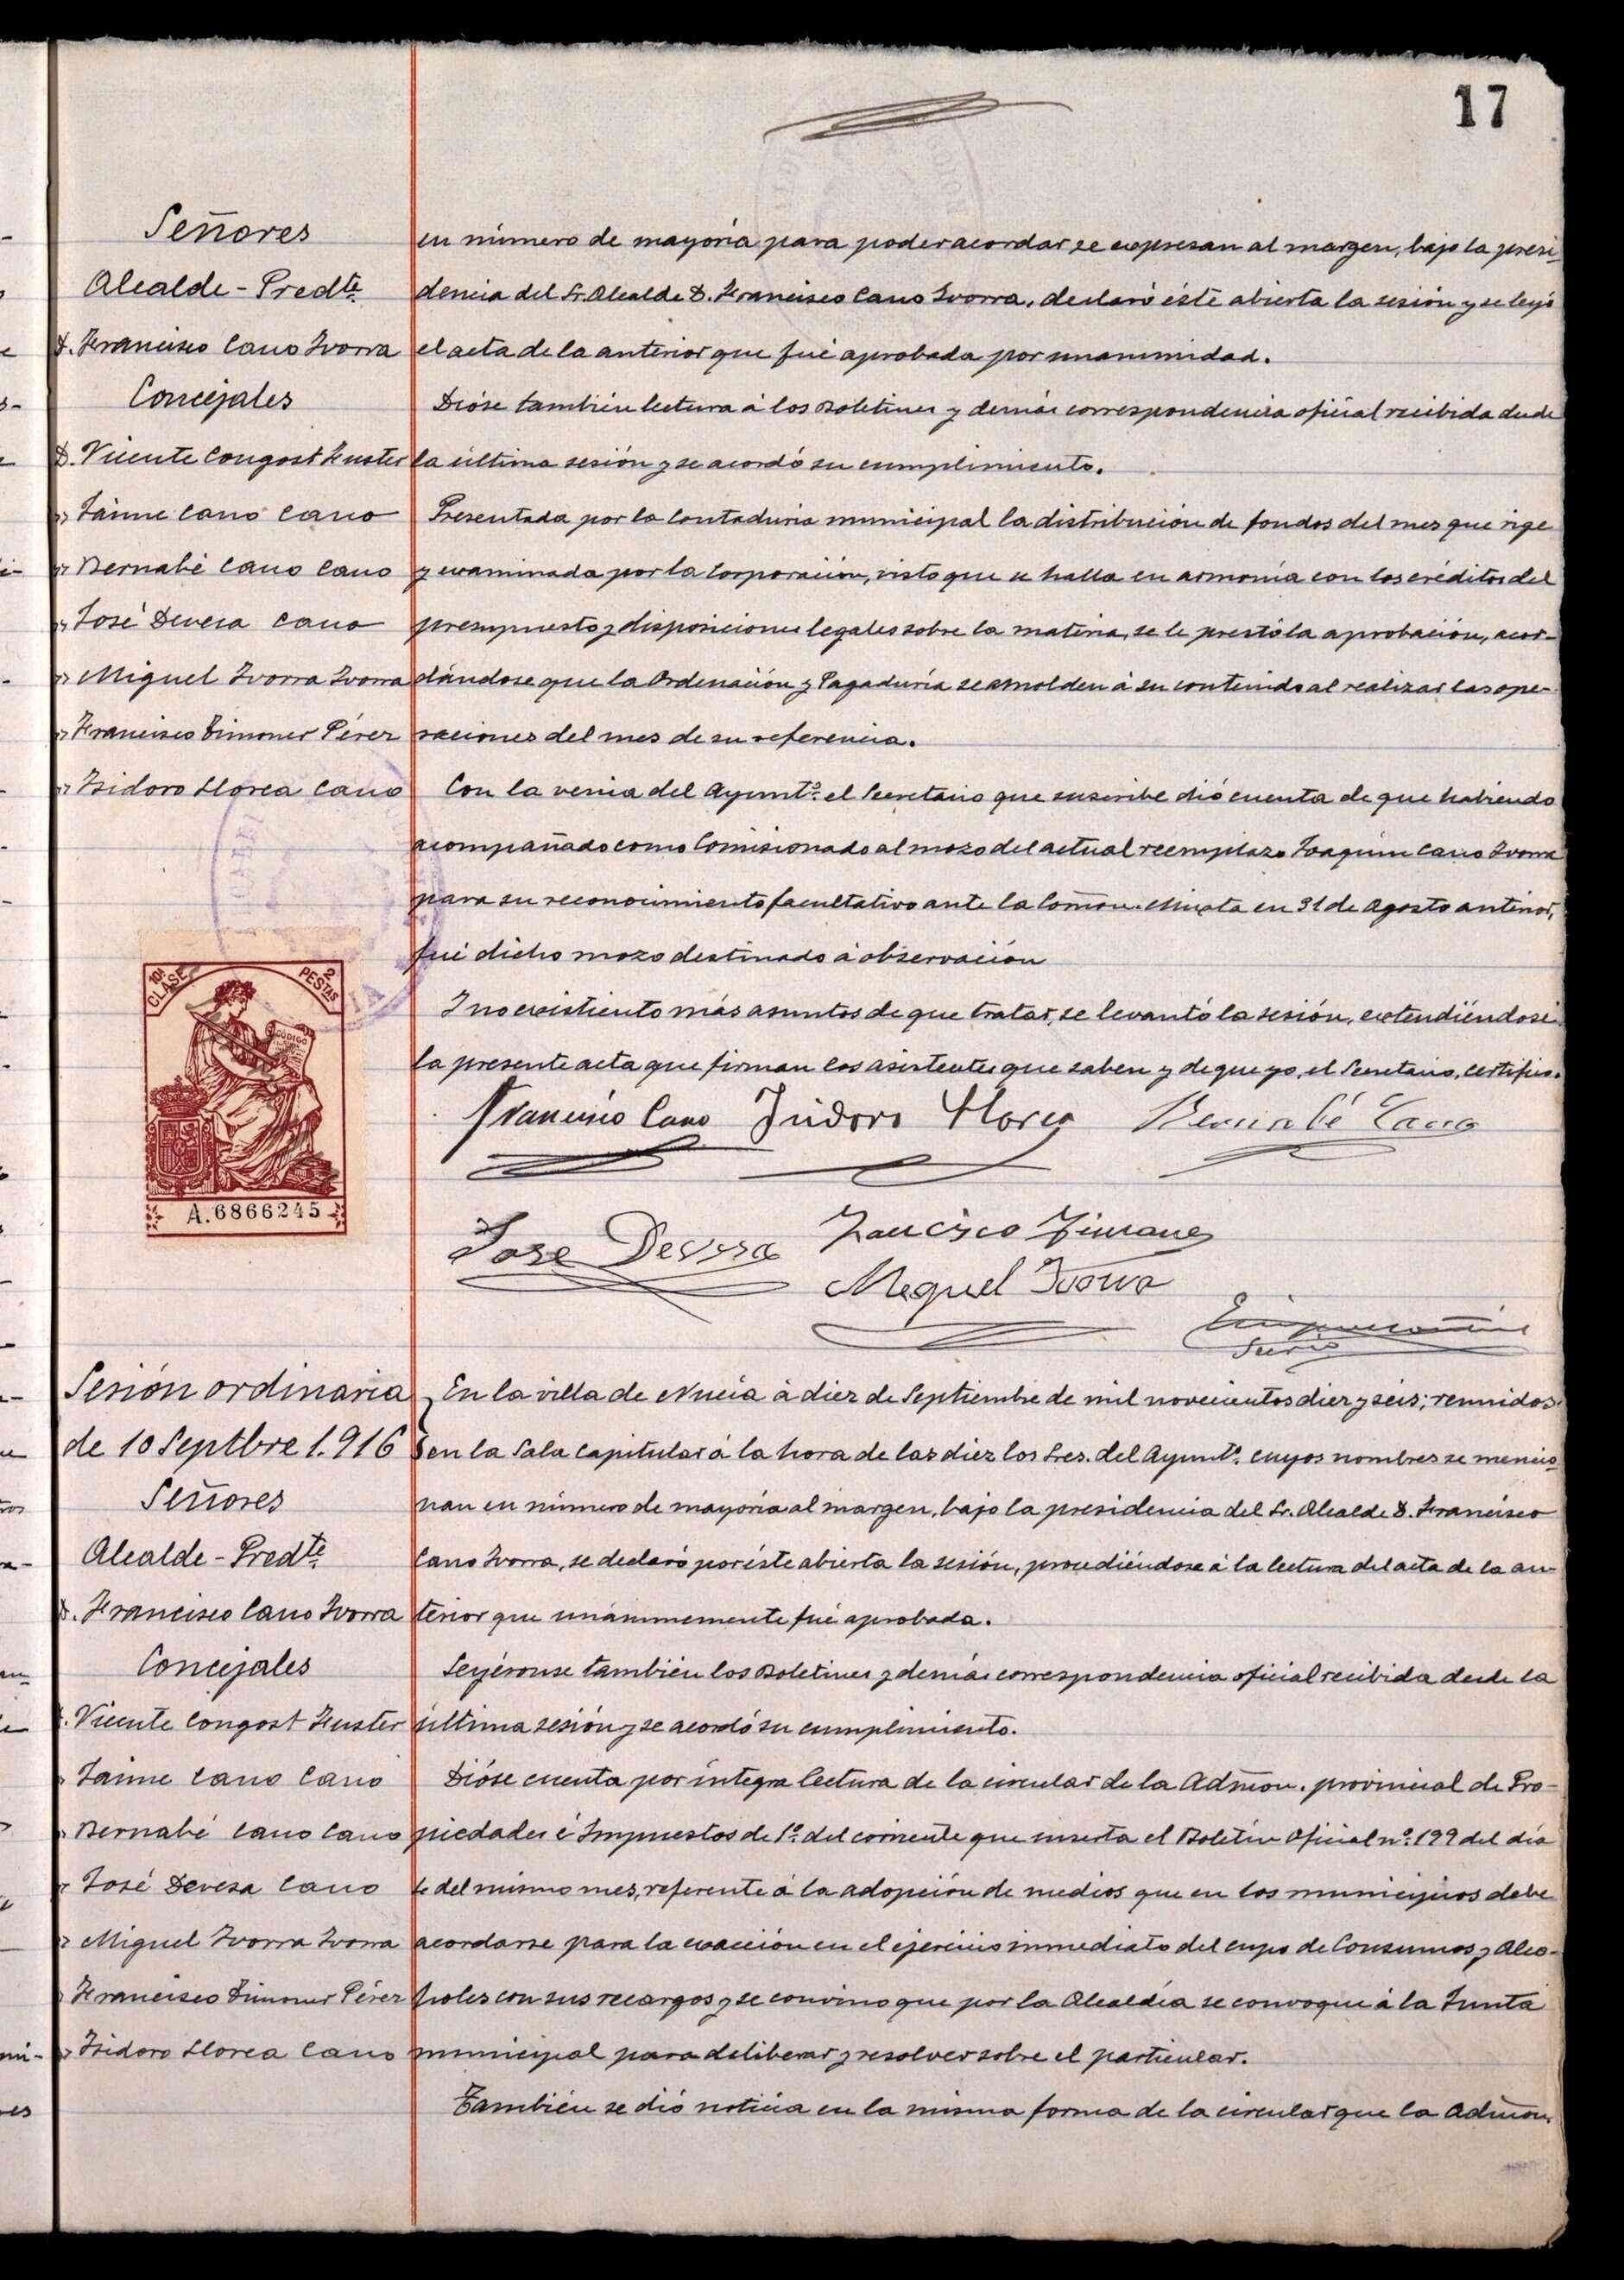 17
Señores
Alcalde-Predte.
D. Francisco Cano Ivorra
Concejales
D. Vicente Congost Fuster
» Jaime Cano Cano
» Bernabé Cano Cano
» José Devesa Cano
» Miguel Ivorra Ivorra
» Francisco Zimoner Pérez
» Isidoro Llorca Cano
en número de mayoría para poder acordar se expresan al margen, bajo la presi-
dencia del Sr. Alcalde D. Francisco Cano Ivorra, declaró éste abierta la sesión y se leyó
el acta de la anterior que fué aprobada por unanimidad.
Dióse también lectura á los Boletines y demás correspondencia oficial recibida desde
la última sesión y se acordó su cumplimiento.
Presentada por la Contaduria municipal la distribución de fondos del mes que rige
y examinada por la Corporación, visto que se halla en armonía con los créditos del
presupuesto y disposiciones legales sobre la materia, se le prestó la aprobación, acor-
dándose que la Ordenación y Pagaduría se amolden á su contenido al realizar las ope-
raciones del mes de su referencia.
Con la venia del Ayuntº. el Secretario que suscribe dió cuenta de que habiendo
acompañado como Comisionado al mozo del actual reemplazo Joaquín Cano Ivorra
para su reconocimiento facultativo ante la Comon. Mixta en 31 de Agosto anterior,
fué dicho mozo destinado á observación
Y no existiento más asuntos de que tratar, se levantó la sesión, extendiéndose
la presente acta que firman los asistentes que saben y de que yo, el Secretario, certifico.
Francisco Cano Isidoro Llorca Bernabé Cano
Jose Devesa Francisco Zimoner
Miguel Ivorra
Srio
10ª CLASE 2 PESTAS
CÓDIGO
A.6866245
Sesión ordinaria
de 10 Septbre 1.916
Señores
Alcalde-Predte.
D. Francisco Cano Ivorra
Concejales
D. Vicente Congost Fuster
» Jaime Cano Cano
» Bernabé Cano Cano
» José Devesa Cano
» Miguel Ivorra Ivorra
» Francisco Zimoner Pérez
» Isidoro Llorca Cano
En la villa de Nucia á diez de Septiembre de mil novecientos diez y seis; reunidos
en la Sala Capitular á la hora de las diez los Sres. del Ayuntº. cuyos nombres se mencio-
nan en número de mayoría al margen, bajo la presidencia del Sr. Alcalde D. Francisco
Cano Ivorra, se declaró por éste abierta la sesión, procediéndose á la lectura del acta de la an-
terior que unánimemente fué aprobada.
Leyéronse también los Boletines y demás correspondencia oficial recibida desde la
última sesión y se acordó su cumplimiento.
Dióse cuenta por íntegra lectura de la circular de la Admon. provincial de Pro-
piedades é Impuestos de 1º. del corriente que inserta el Boletín Oficial nº. 199 del día
del mismo mes, referente á la adopción de medios que en los municipios debe
acordarse para la exacción en el ejercicio inmediato del cupo de Consumos y Alco-
holes con sus recargos y se convino que por la Alcaldía se convoque á la Junta
municipal para deliberar y resolver sobre el particular.
También se dió noticia en la misma forma de la circular que la Admon.